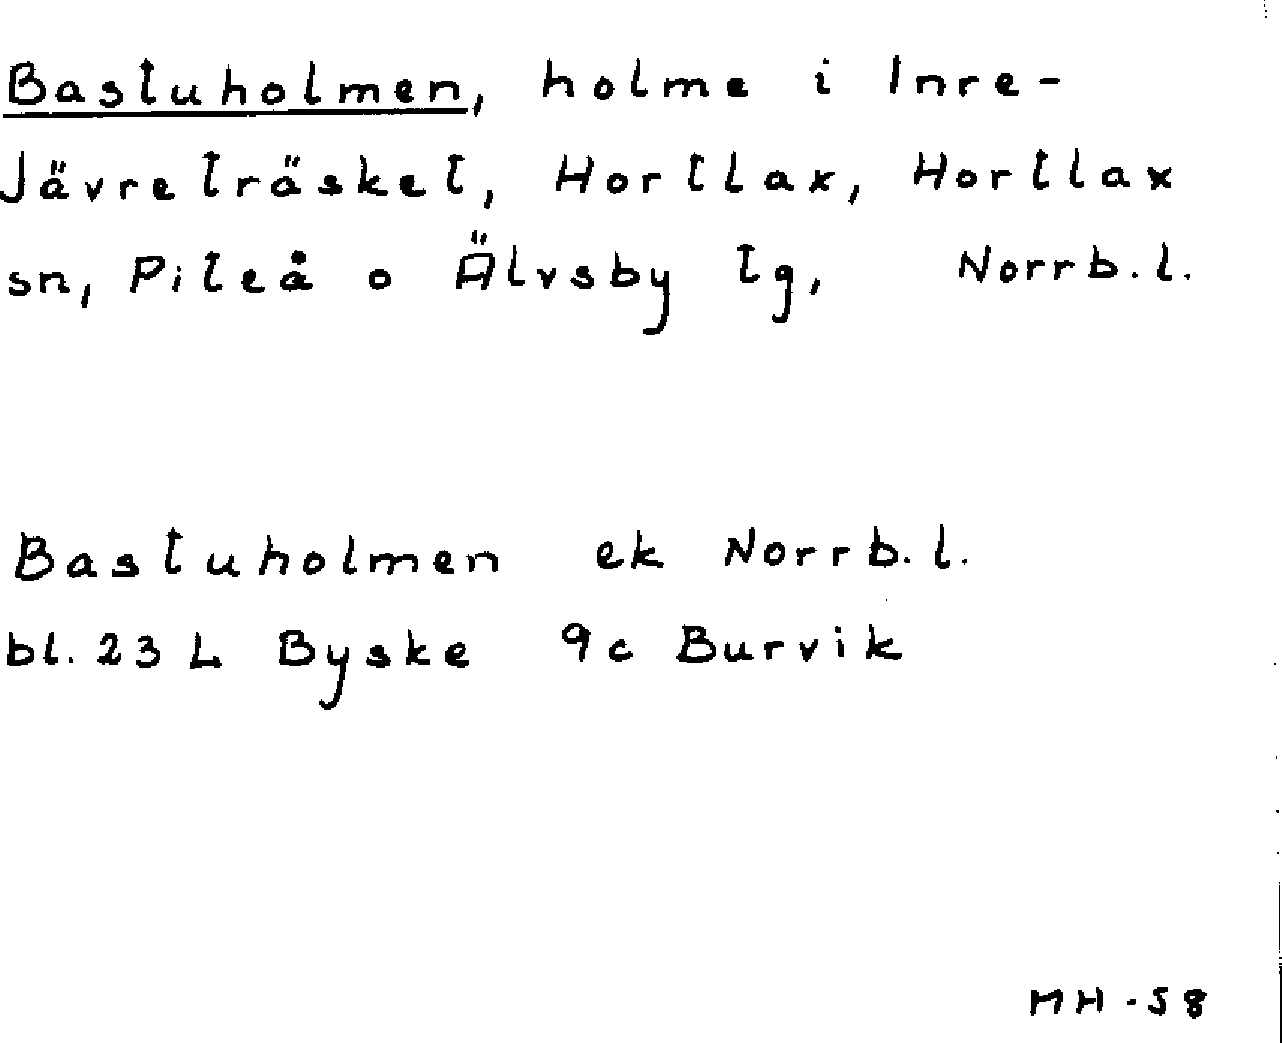 Bastuholmen, holme i Inre-
Jävreträsket, Hortlax, Hortlax
sn, Piteå o Älvsby tg, Norrb.l.
Bastuholmen ek Norrb.l.
bl. 23 L Byske 9c Burvik
MH -58